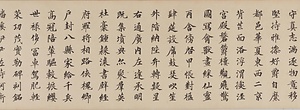 守真志滿逐物意移
堅持雅操好爵自縻
都邑華夏東西二京
背芒面洛浮渭據涇
宮殿盤鬱樓觀飛驚
圖寫禽獸畫綵仙靈
丙舍傍啓甲帳對楹
肆筵設席鼓瑟吹笙
陞階納陛弁轉疑星
右通廣內左達承明
既集墳典亦聚群英
杜稾鍾隸漆書壁經
府羅將相路俠槐卿
戶封八縣家給千兵
高冠陪輦驅轂振纓
世祿侈富車駕肥輕
策功茂實勒碑刻銘